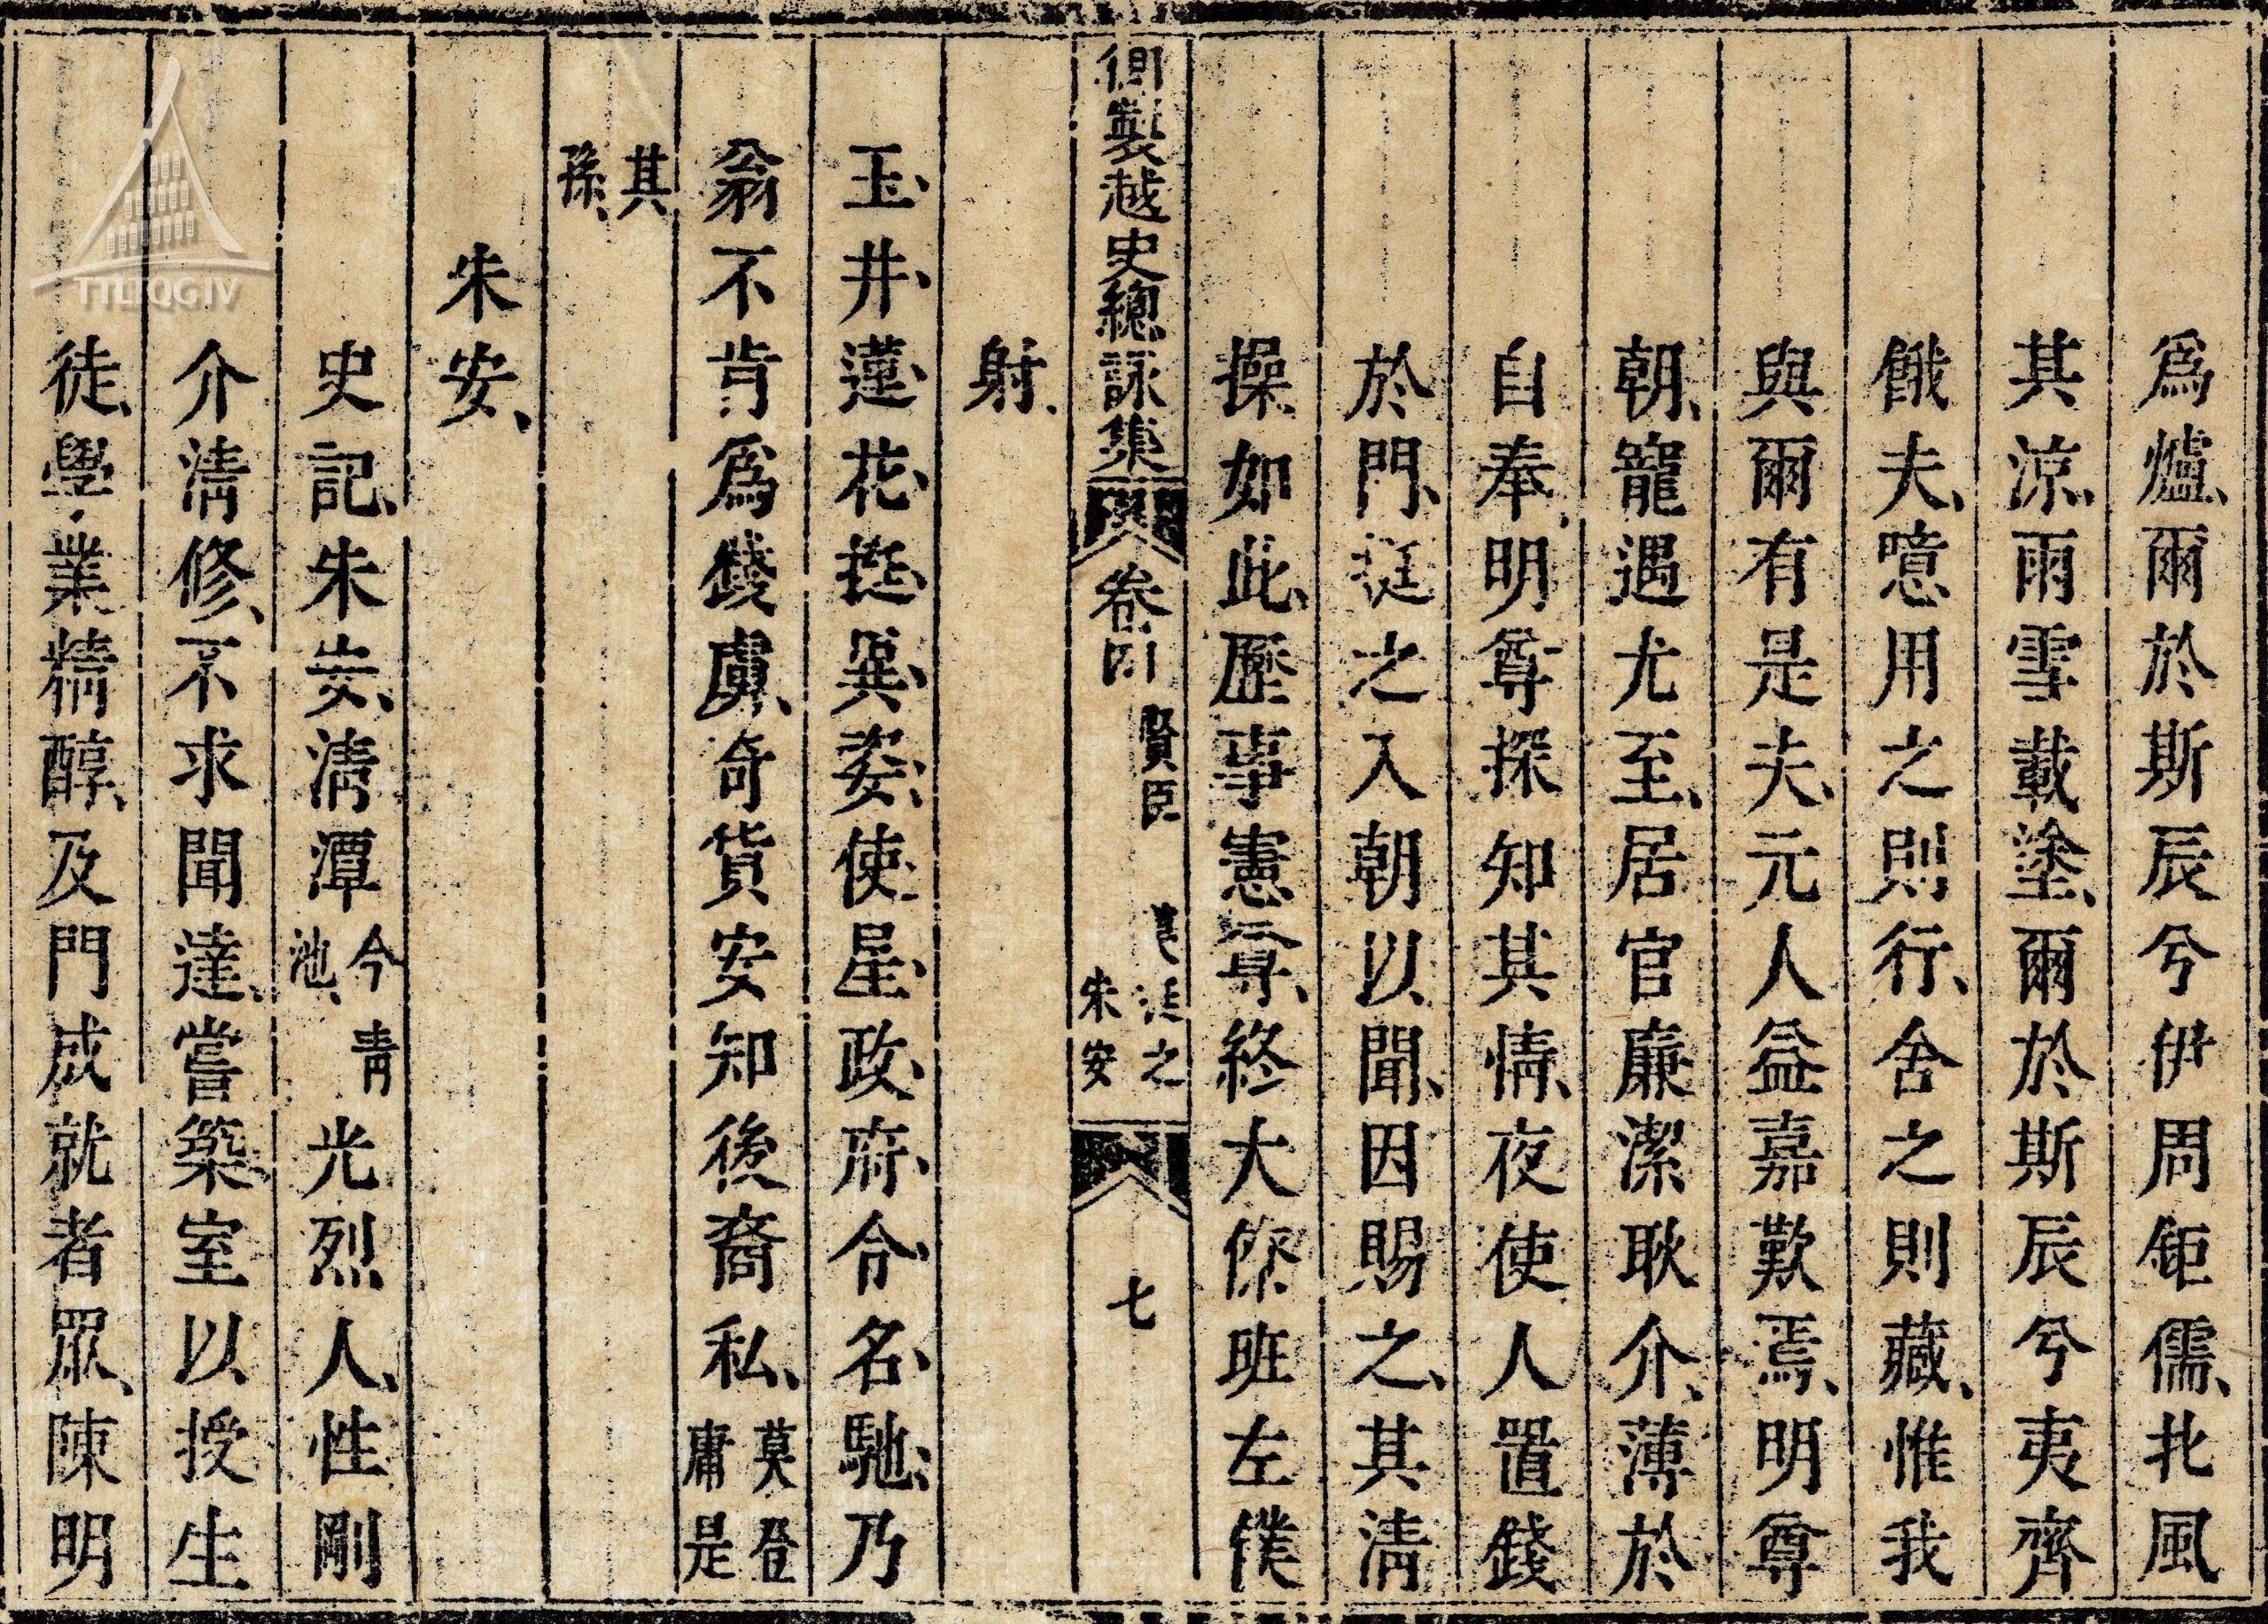 爲爐、爾於斯辰兮伊周鉅儒、北風
其涼、雨雪載塗、爾於斯辰兮夷齊
餓夫、噫用之則行、舍之則藏、惟我
與爾有是夫、元人益嘉歎焉、明尊
朝、寵遇尤至、居官廉潔耿介、薄於
自奉、明尊探知其情、夜使人置錢
於門、挺之入朝以聞、因賜之、其清
操如此、歷事憲尊、終大僚班左僕
御製越史總詠集 卷四 賢臣 莫挺之 朱安 七
射、
玉井蓮花挺異姿、使星政府令名馳、乃
翁不肯爲錢虜、奇貨安知後裔私、莫登庸是
其孫、
朱安、
史記、朱安、清潭今青池、光烈人、性剛
介清修、不求聞達、嘗築室以授生
徒、學業精醇、及門成就者眾、陳明
TTLTQGIV